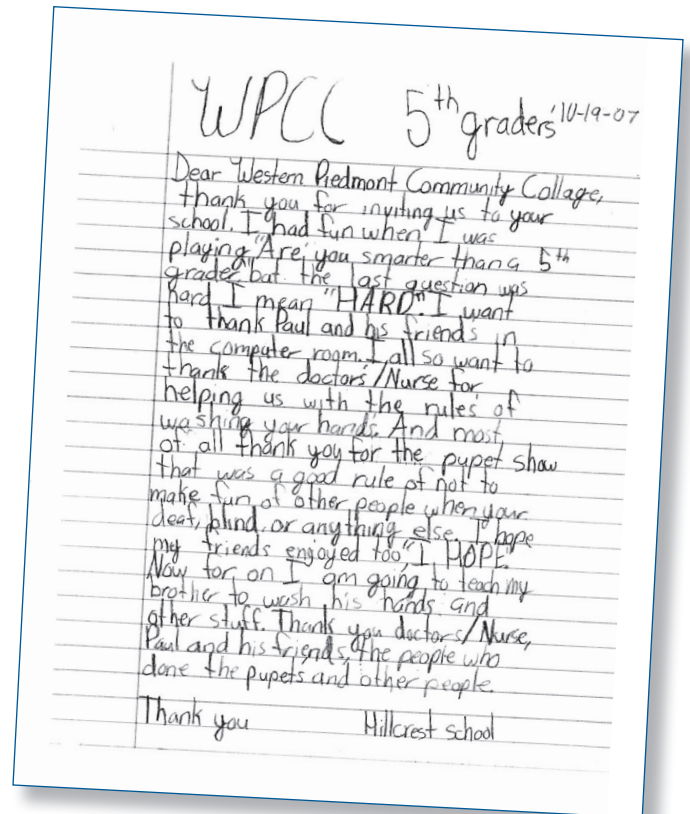 WPCC 5th graders' 10-19-07
Dear Western Piedmont Community Collage,
thank you for inviting us to your
school. I had fun when I was
playing "Are you smarter than a 5th
grader" bat the last question was
hard I mean "HARD". I want
to thank Paul and his friends in
the computer room. I all so want to
thank the doctors/Nurse for
helping us with the rules of
washing your hands. And most
of all thank you for the pupet show
that was a good rule of not to
make fun of other people when your
deaf, blind. or anything else. I hope
my friends enjoyed too, "I HOPE
Now for on I am going to teach my
brother to wash his hands and
other stuff. Thank you doctors/Nurse,
Paul and his friends, the people who
done the pupets and other people.
Thank you Hillcrest school